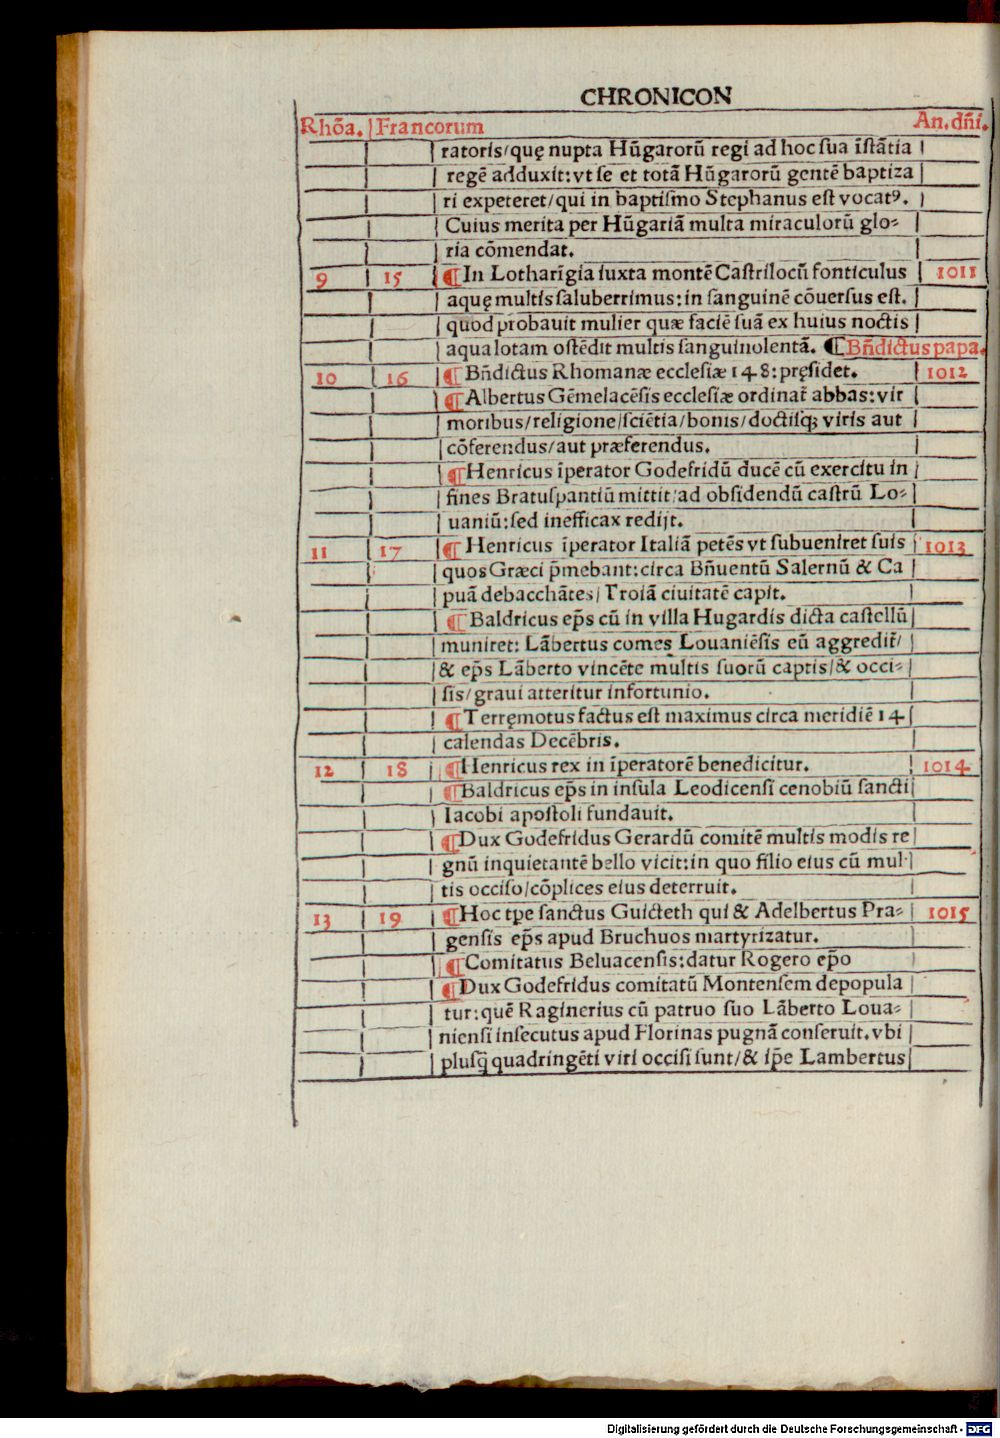 CHRONICON
Rhõa. Francorum An. dñi.
ratoris/quę nupta Hũgarorũ regi ad hoc sua ĩstãtia
regẽ adduxit: vt se et totã Hũgarorũ gentẽ baptiza
ri expeteret/qui in baptismo Stephanus est vocatꝰ.
Cuius merita per Hũgariã multa miraculorũ glo⸗
ria cõmendat.
9 15 ¶In Lotharĩgia iuxta montẽ Castrilocũ fonticulus 1011
aquę multis saluberrimus: in sanguinẽ cõuersus est.
quod probauit mulier quæ faciẽ suã ex huius noctis
aqua lotam ostẽdit multis sanguinolentã. ¶Bñdictus papa.
10 16 ¶Bñdictus Rhomanæ ecclesiæ 148: pręsidet. 1012
¶Albertus Gẽmelacẽsis ecclesiæ ordinat̃ abbas: vir
moribus/religione/sciẽtia/bonis/doctisqꝫ viris aut
cõferendus/aut præferendus.
¶Henricus ĩperator Godefridũ ducẽ cũ exercitu in
fines Bratuspantiũ mittit/ad obsidendũ castrũ Lo⸗
uaniũ: sed inefficax redijt.
11 17 ¶Henricus ĩperator Italiã petẽs vt subueniret suis 1013
quos Græci p̃mebant: circa Bñuentũ Salernũ & Ca
puã debacchãtes/Troiã ciuitatẽ capit.
¶Baldricus ep̃s cũ in villa Hugardis dicta castellũ
muniret: Lãbertus comes Louaniẽsis eũ aggredit̃/
& ep̃s Lãberto vincẽte multis suorũ captis/& occi⸗
sis/graui atteritur infortunio.
¶Terręmotus factus est maximus circa meridiẽ 14
calendas Decẽbris.
12 18 ¶Henricus rex in ĩperatorẽ benedicitur. 1014
¶Baldricus ep̃s in insula Leodicensi cenobiũ sancti
Iacobi apostoli fundauit.
¶Dux Godefridus Gerardũ comitẽ multis modis re
gnũ inquietantẽ bello vicit: in quo filio eius cũ mul⸗
tis occiso/cõplices eius deterruit.
13 19 ¶Hoc tp̃e sanctus Guicteth qui & Adelbertus Pra⸗ 1015
gensis ep̃s apud Bruchuos martyrizatur.
¶Comitatus Beluacensis: datur Rogero ep̃o
¶Dux Godefridus comitatũ Montensem depopula
tur: quẽ Raginerius cũ patruo suo Lãberto Loua⸗
niensi insecutus apud Florinas pugnã conseruit. vbi
plusq̃ quadringẽti viri occisi sunt/& ip̃e Lambertus
Digitalisierung gefördert durch die Deutsche Forschungsgemeinschaft - DFG